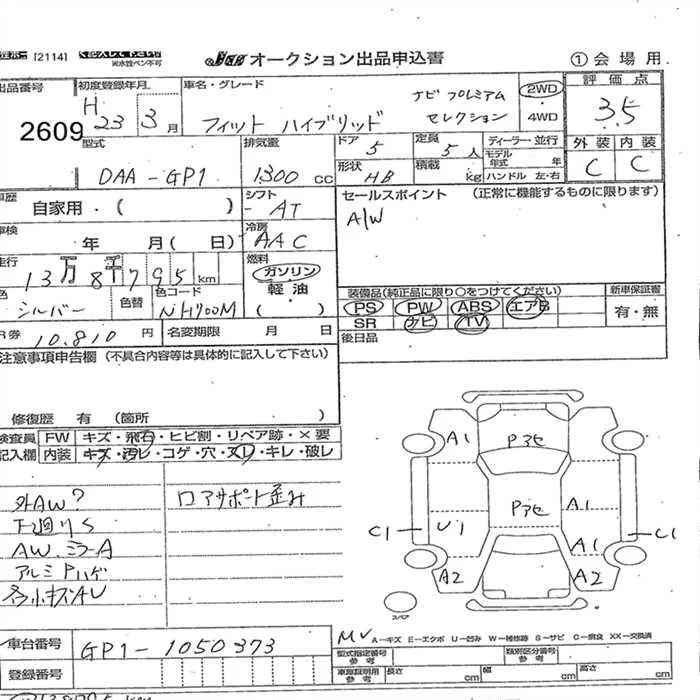 [2114] ※水性ペン不可 オークション出品申込書 ①会場用
出品番号 初度登録年月 車名・グレード 評価点
2609 H23 3月 フィット ハイブリッド ナビ プレミアム セレクション 2WD 4WD 3.5
型式 排気量 ドア 定員 ディーラー・並行 外装 内装
DAA-GP1 1300cc 5 5人 モデル年式 年 C C
形状 HB 積載 kg ハンドル 左・右
車歴 自家用・( ) シフト AT セールスポイント (正常に機能するものに限ります)
車検 年 月( 日) 冷房 AAC A/W
走行 13万8千795km 燃料 ガソリン
軽油 ( )
色 シルバー 色替 色コード NH700M
装備品(純正品に限り○をつけてください) 新車保証書
PS PW ABS エアB 有・無
SR ナビ TV
R券 10.810円 名変期限 月 日 後日品
注意事項申告欄(不具合内容等は具体的に記入して下さい)
修復歴 有 (箇所 )
検査員 FW キズ・飛石・ヒビ割・リペア跡・×要
記入欄 内装 キズ・汚レ・コゲ・穴・スレ・キレ・破レ
外AW? ロアサポート歪み
下廻りS
AW.ミラーA
アルミPハゲ
各小キズAU
A1 Pアセ
Pアセ A1
C1 U1 C1
A1
A2 A2
スペア
車台番号 GP1-1050373
MV A-キズ E-エクボ U-凹み W-補修跡 S-サビ C-腐食 XX-交換済
登録番号 型式指定番号 参考 類別区分番号 参考
車庫証明用 参考 長さ cm 幅 cm 高さ cm